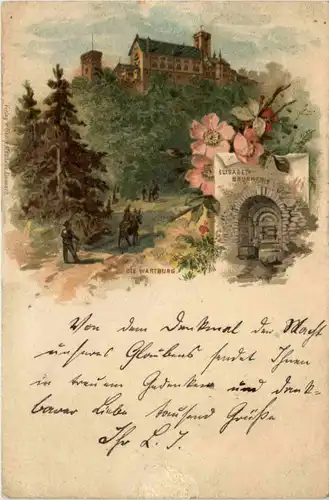 ELISABETH
BRUNNEN
DIE WARTBURG
Von dem Denkmal der Macht
unseres Glaubens sendet Ihnen
in treuem Gedenken und dank-
barer Liebe tausend Grüße
Ihr L. I.